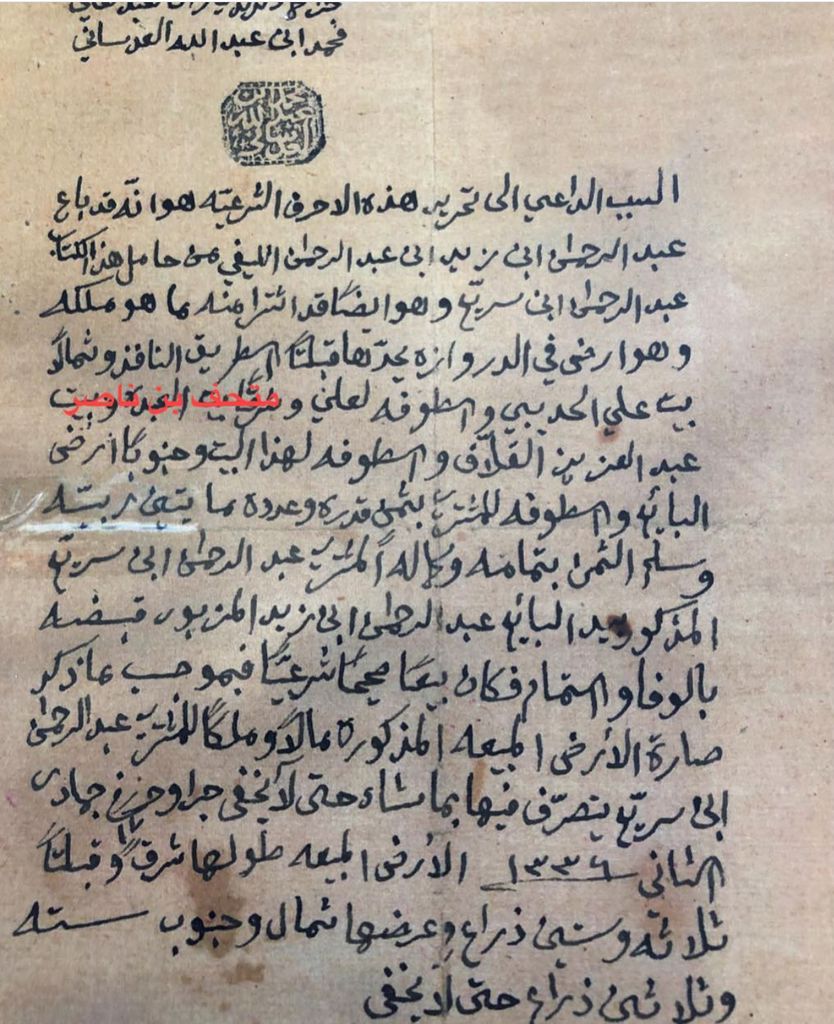 محمد ابن عبد الله العدساني
السبب الداعي الى تحرير هذه الاحرف الشرعيه هو انه قد باع
عبد الرحمن ابن زيد ابن عبد الرحمن الليفي من حامل هذا الكتاب
عبد الرحمن ابن سريع وهو ايضاً قد اشترا منه ما هو ملكه
وهو ارض في الدروازه يحدها قبلتاً الطريق النافذ وشمالاً
بيت علي الحديبي والسطوفه لعلي وشرقاً بيت
متحف بن ناصر
عبد العزيز القلاف والسطوفه لهذا البيت وجنوباً أرض
البائع والسطوفه للمشتري بثمن قدره وعدده مايتين ربيّه
وسلم الثمن بتمامه وكماله المشتري عبد الرحمن ابن سريع
المذكور بيد البائع عبد الرحمن ابن زيد المزبور قبضه
بالوفا والتمام فكان بيعاً صحيحاً شرعيّاً فبموجب ما ذكر
صارة الأرض المبيعه المذكورة مالاً وملكاً للمشتري عبد الرحمن
ابن سريع يتصرّف فيها بما شاء حتى لا يخفى جرا وحرر في جمادى
الثاني ١٣٣٦ الأرض المبيعه طولها شرقاً وقبلتاً
ثلاثه وستين ذراع وعرضها شمال وجنوب سته
وثلاثين ذراع حتى لا يخفى